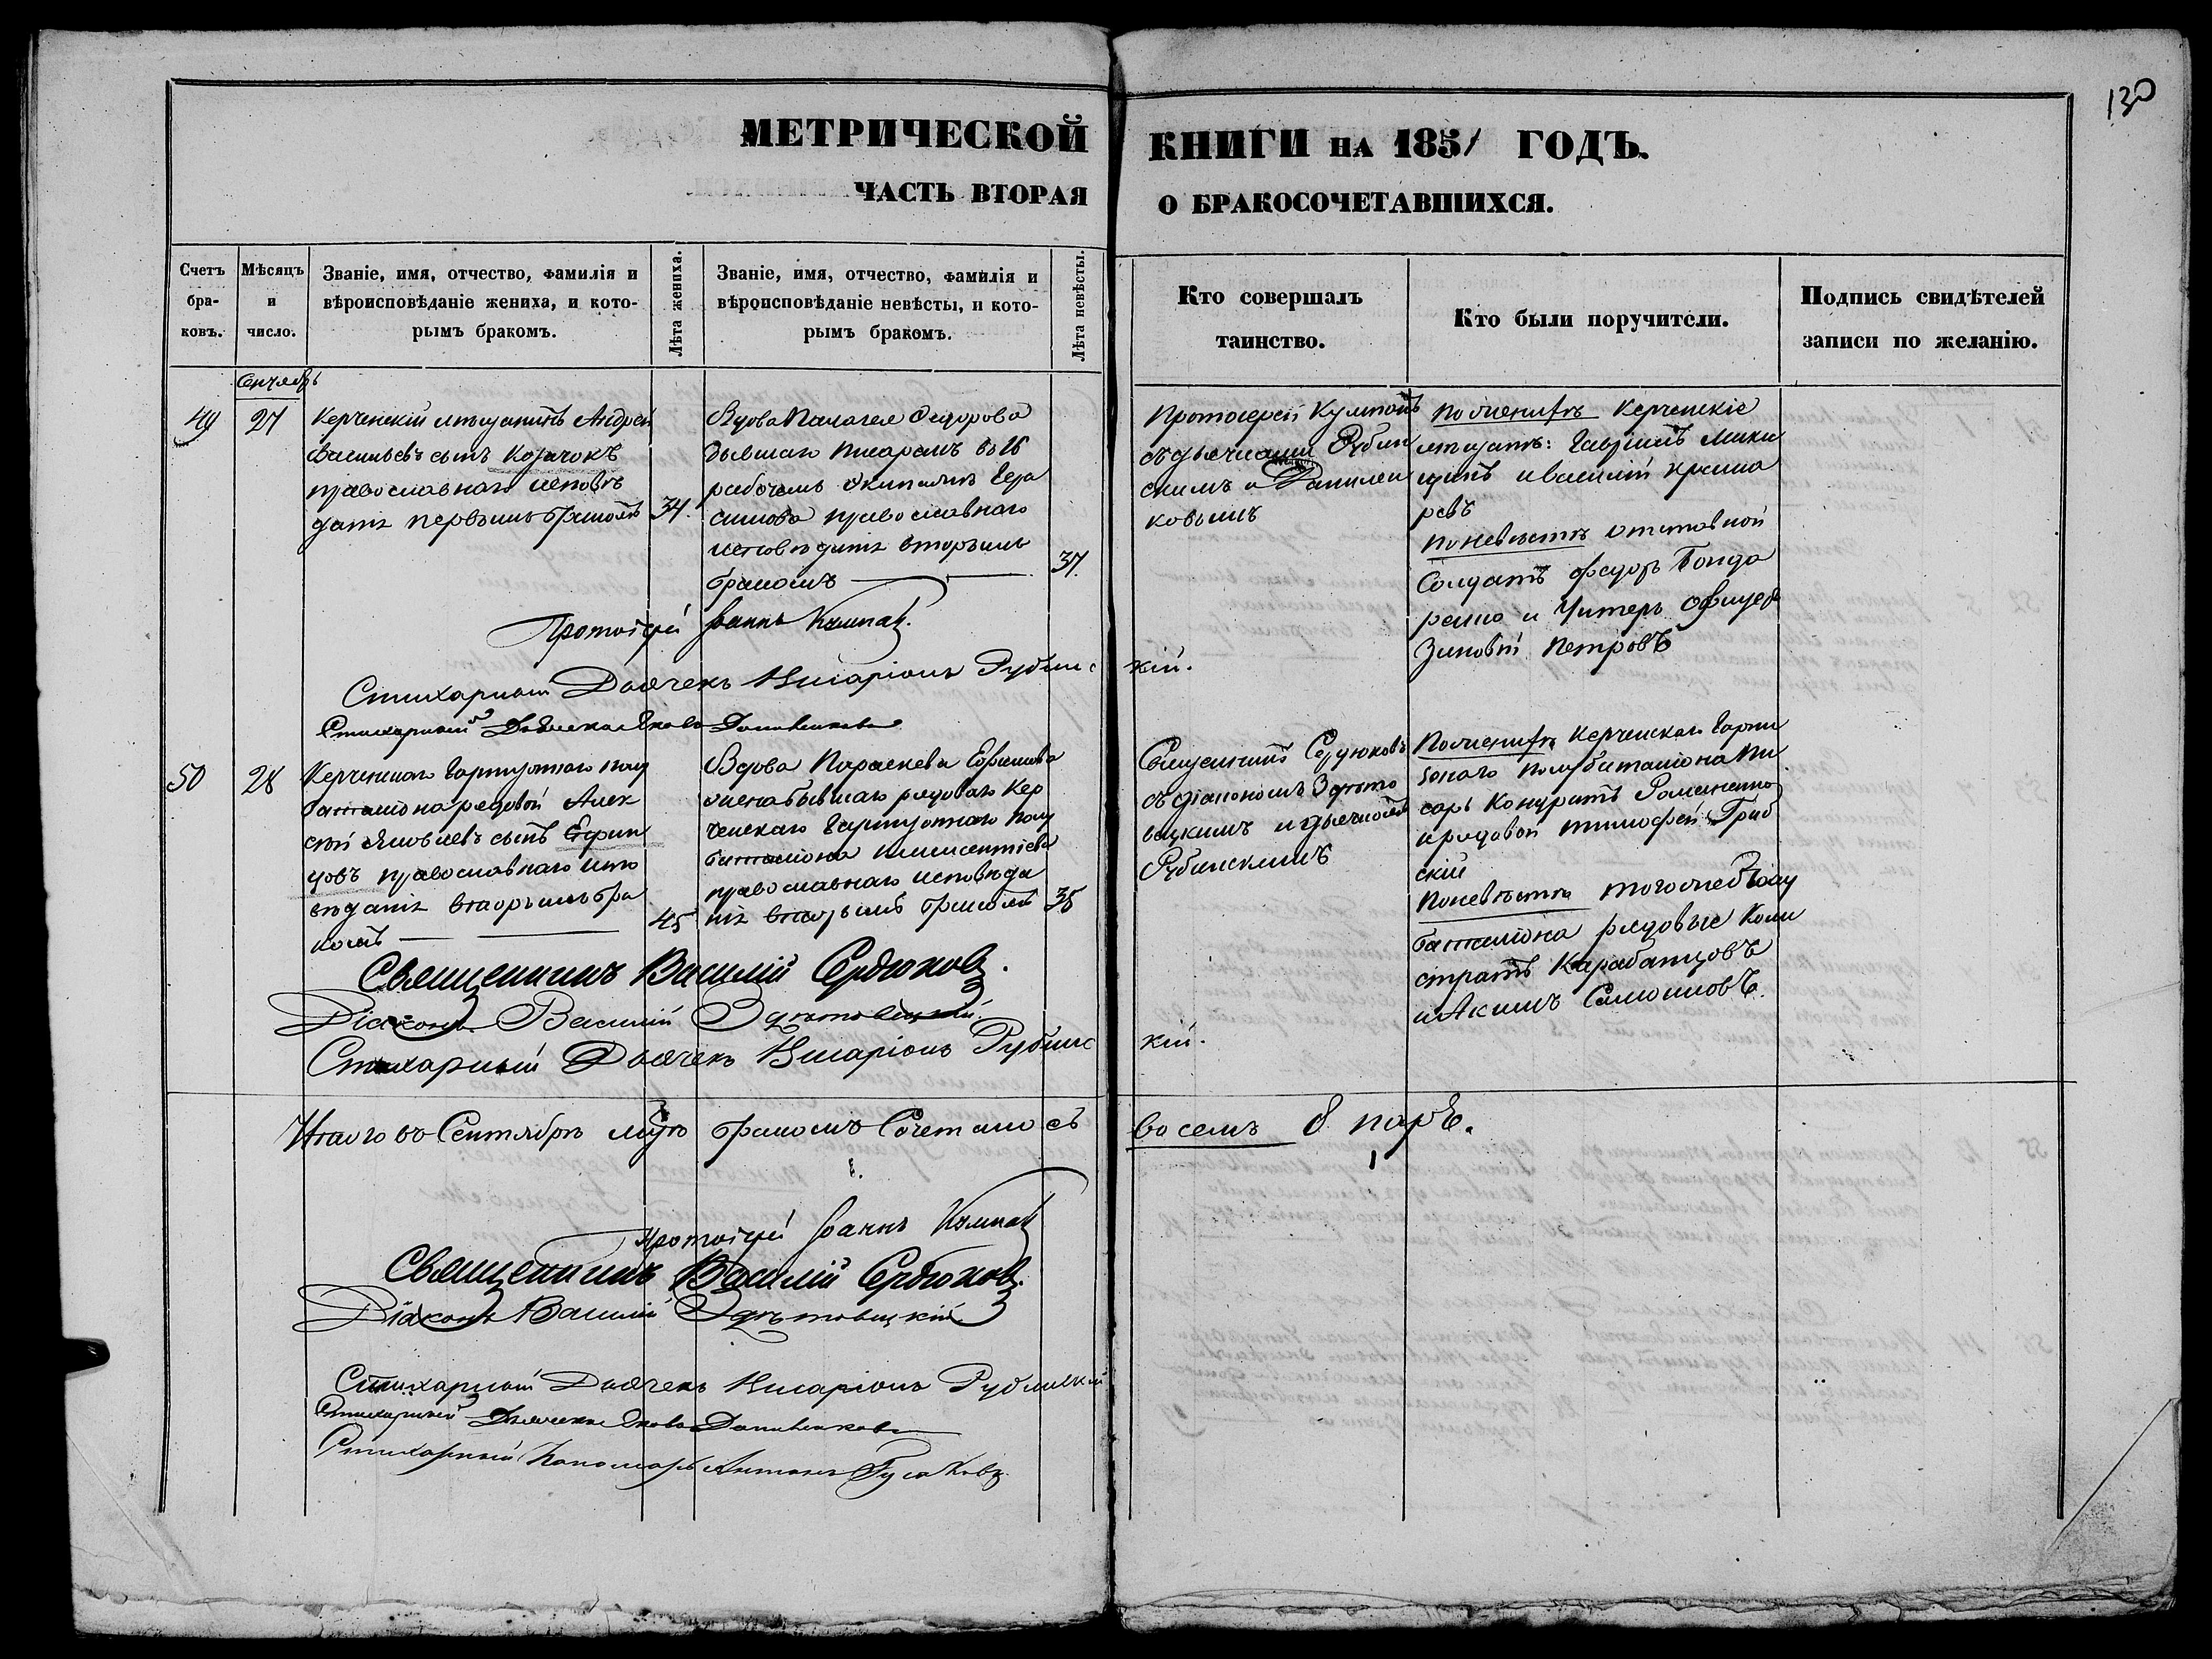 130
МЕТРИЧЕСКОЙ КНИГИ НА 1851 ГОДЪ.
ЧАСТЬ ВТОРАЯ О БРАКОСОЧЕТАВШИХСЯ.
Счетъ бра- ковъ.
Мѣсяцъ и число.
Званіе, имя, отчество, фамилія и
вѣроисповѣданіе жениха, и кото-
рымъ бракомъ.
Лѣта жениха.
Званіе, имя, отчество, фамилія и
вѣроисповѣданіе невѣсты, и кото-
рымъ бракомъ.
Лѣта невѣсты.
Кто совершалъ
таинство.
Кто были поручители.
Подпись свидѣтелей
записи по желанію.
Сентябрь
49
27
Керченскій мѣщанинъ Андрей
Васильевъ сынъ Козачокъ
православнаго исповѣ
данія первымъ бракомъ
34.
Вдова Палагея Федорова
бывшаго писаремъ въ 16
рабочемъ экипажѣ Гера
симова православнаго
исповѣданія вторымъ
бракомъ
37.
Протоіерей Кумпанъ
съ дьячками Рубин
скимъ и Данилен
ковымъ
По женихѣ Керченскіе
мѣщане: Гавріилъ Мики
цинъ и Василій Крама
ревъ
по невѣстѣ отставной
Солдатъ Федоръ Бонда
ренко и Унтеръ офицеръ
Зиновій Петровъ
Протоіерей Іоаннъ Кумпанъ.
Стихарный Дьячекъ Иларіонъ Рубинскій.
Стихарный Дьячекъ Яковъ Даниленковъ
50
28
Керченскаго Гарнизоннаго полу
баталіона рядовой Алек
сѣй Яковлевъ сынъ Ефим
цовъ православнаго испо
вѣданія вторымъ бра
комъ
45
Вдова Параскева Ефимова
жена бывшаго рядоваго Кер
ченскаго Гарнизоннаго полу
баталіона
православнаго исповѣда
нія вторымъ бракомъ
35
Священникъ Сердюковъ
съ діакономъ
и дьячкомъ
Рубинскимъ
По женихѣ Керченскаго Гарни
зонаго полубаталіона Пи
сарь Кондратъ Романенко
и рядовой Тимофей Гриб
скій
По невѣстѣ того же полу
баталіона рядовые Кали
стратъ Карабанцовъ
и Акимъ Самойловъ.
Священникъ Василій Сердюковъ.
Діаконъ Василій
Стихарный Дьячекъ Иларіонъ Рубинскій.
Итого въ Сентябрѣ мцѣ бракомъ Сочеталось восемъ 8 паръ.
Протоіерей Іоаннъ Кумпанъ
Священникъ Василій Сердюковъ.
Діаконъ Василій
Стихарный Дьячекъ Иларіонъ Рубинскій
Стихарный Дьячекъ Яковъ Даниленковъ
Стихарный Пономарь Антонъ Гусаковъ.